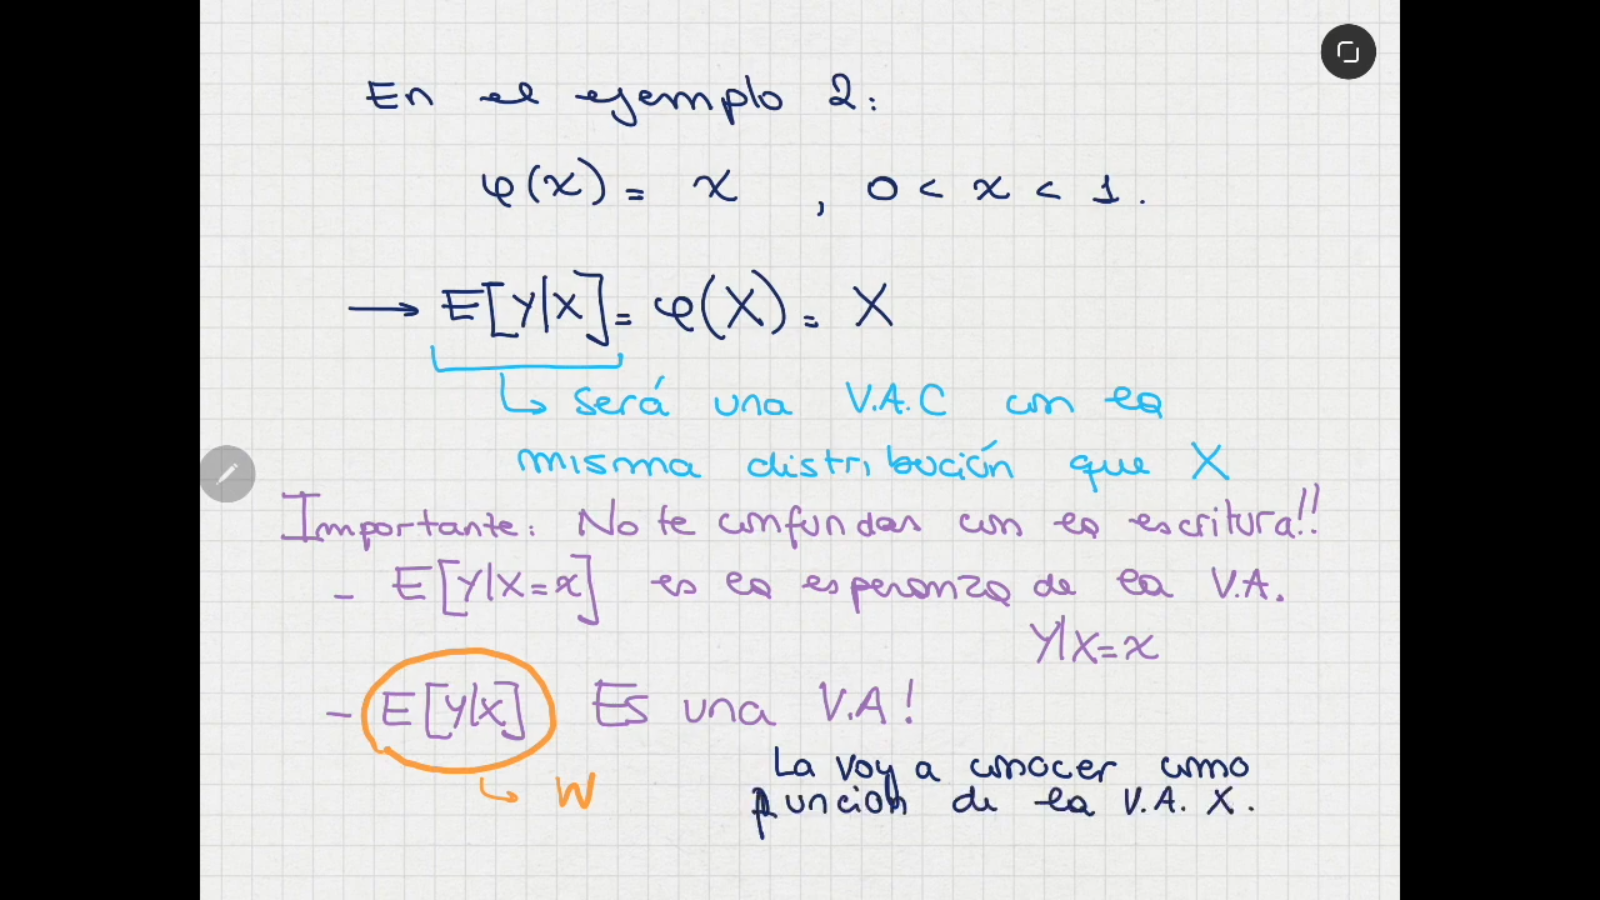 En el ejemplo 2:
φ(x) = x , 0 < x < 1.
→ E[Y|X] = φ(X) = X
↳ Será una V.A.C con la
misma distribución que X
Importante: No te confundas con la escritura!!
- E[Y|X=x] es la esperanza de la V.A.
Y|X=x
- E[Y|X] Es una V.A!
↳ W
La voy a conocer como
función de la V.A. X.